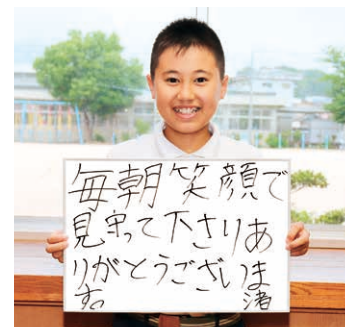 毎朝笑顔で
見守って下さりあ
りがとうございま
す。 渚